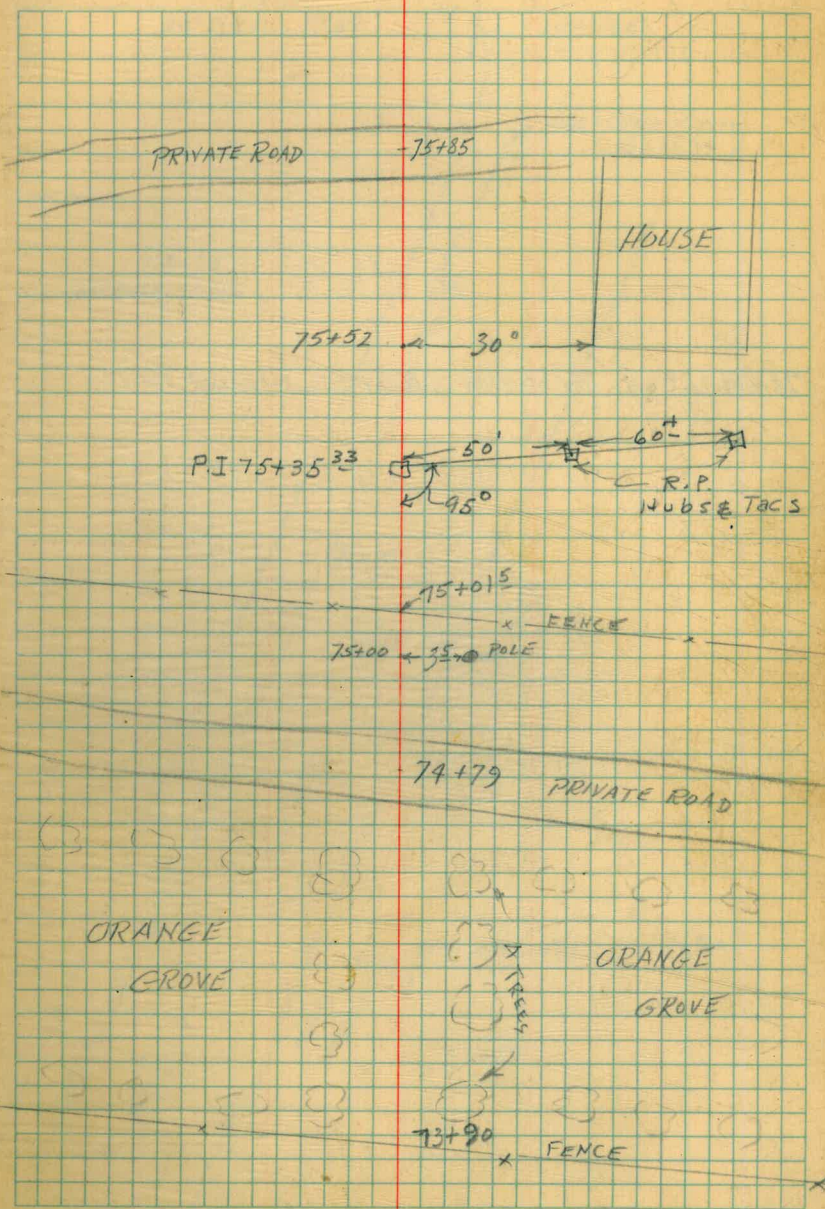 PRIVATE ROAD 75+85
HOUSE
75+52 30°
P.I 75+35 33 50' 60±
95°
R.P.
Hubs & Tacs
75+01 5
FENCE
75+00 35 POLE
74+79
PRIVATE ROAD
ORANGE
GROVE
TREES
ORANGE
GROVE
73+90
FENCE